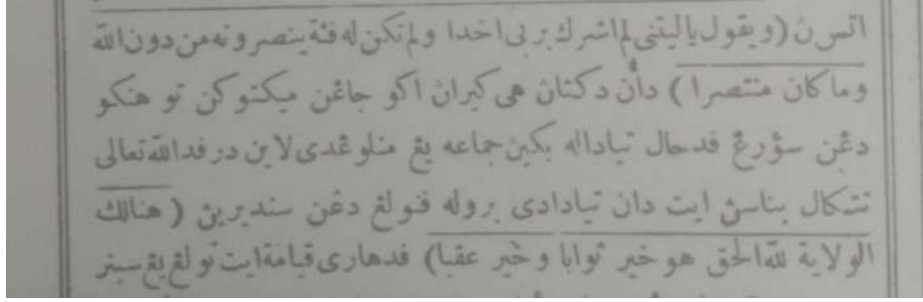 اتسڽ (ويقول ياليتنى لم اشرك بربى احدا ولم تكن له فئة ينصرونه من دون الله
وما كان منتصرا) دان دكتاڽ هى كيراڽ اكو جاڠن ميكتوكن توهنكو
دڠن سؤرڠ فدحال تياداله بكيڽ جماعه يڠ منلوڠدى لاين درفد الله تعالى
تتكال بناسڽ ايت دان تيادادى بروله فنولڠ دڠن سنديرين (هنالك
الولاية لله الحق هو خير ثوابا وخير عقبا) فدهارى قيامة ايت تولڠ يڠ سبنر